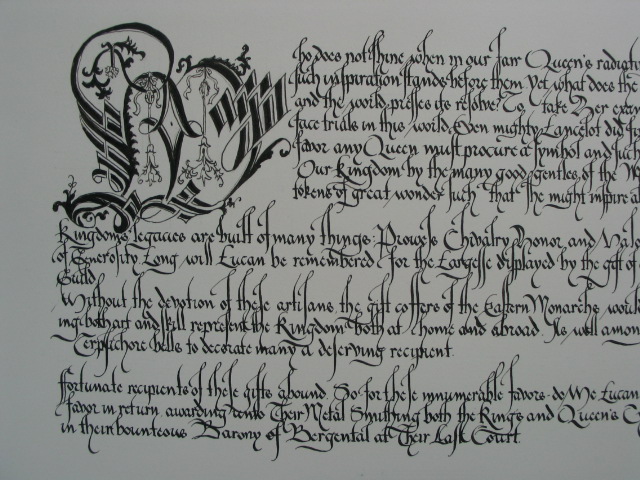 Who does not shine when in our fair Queen's
such inspiration stands before them. Yet what does the
and the world presses its resolve? To take Her
face trials in this world. Even mighty Lancelot did
favor any Queen must procure a symbol and such
Our Kingdom by the many good gentles of the
tokens of great wonder such that she might inspire
Kingdom's legacies are built of many things: Prowess Chivalry Honor and
of Generosity Long will Lucan be remembered for the Largesse displayed by the gift of
Guild.
Without the devotion of these artisans, the gift coffers of the Eastern Monarchs
ing both art and skill represent the Kingdom both at home and abroad. As well
Terpsichore bells to decorate many a deserving recipient.
Fortunate recipients of these gifts abound. So for these innumerable favors do We Lucan
favor in return, awarding unto Their Metal Smithing both the Kings and Queen's
in their bounteous Barony of Bergental at Their Last Court.